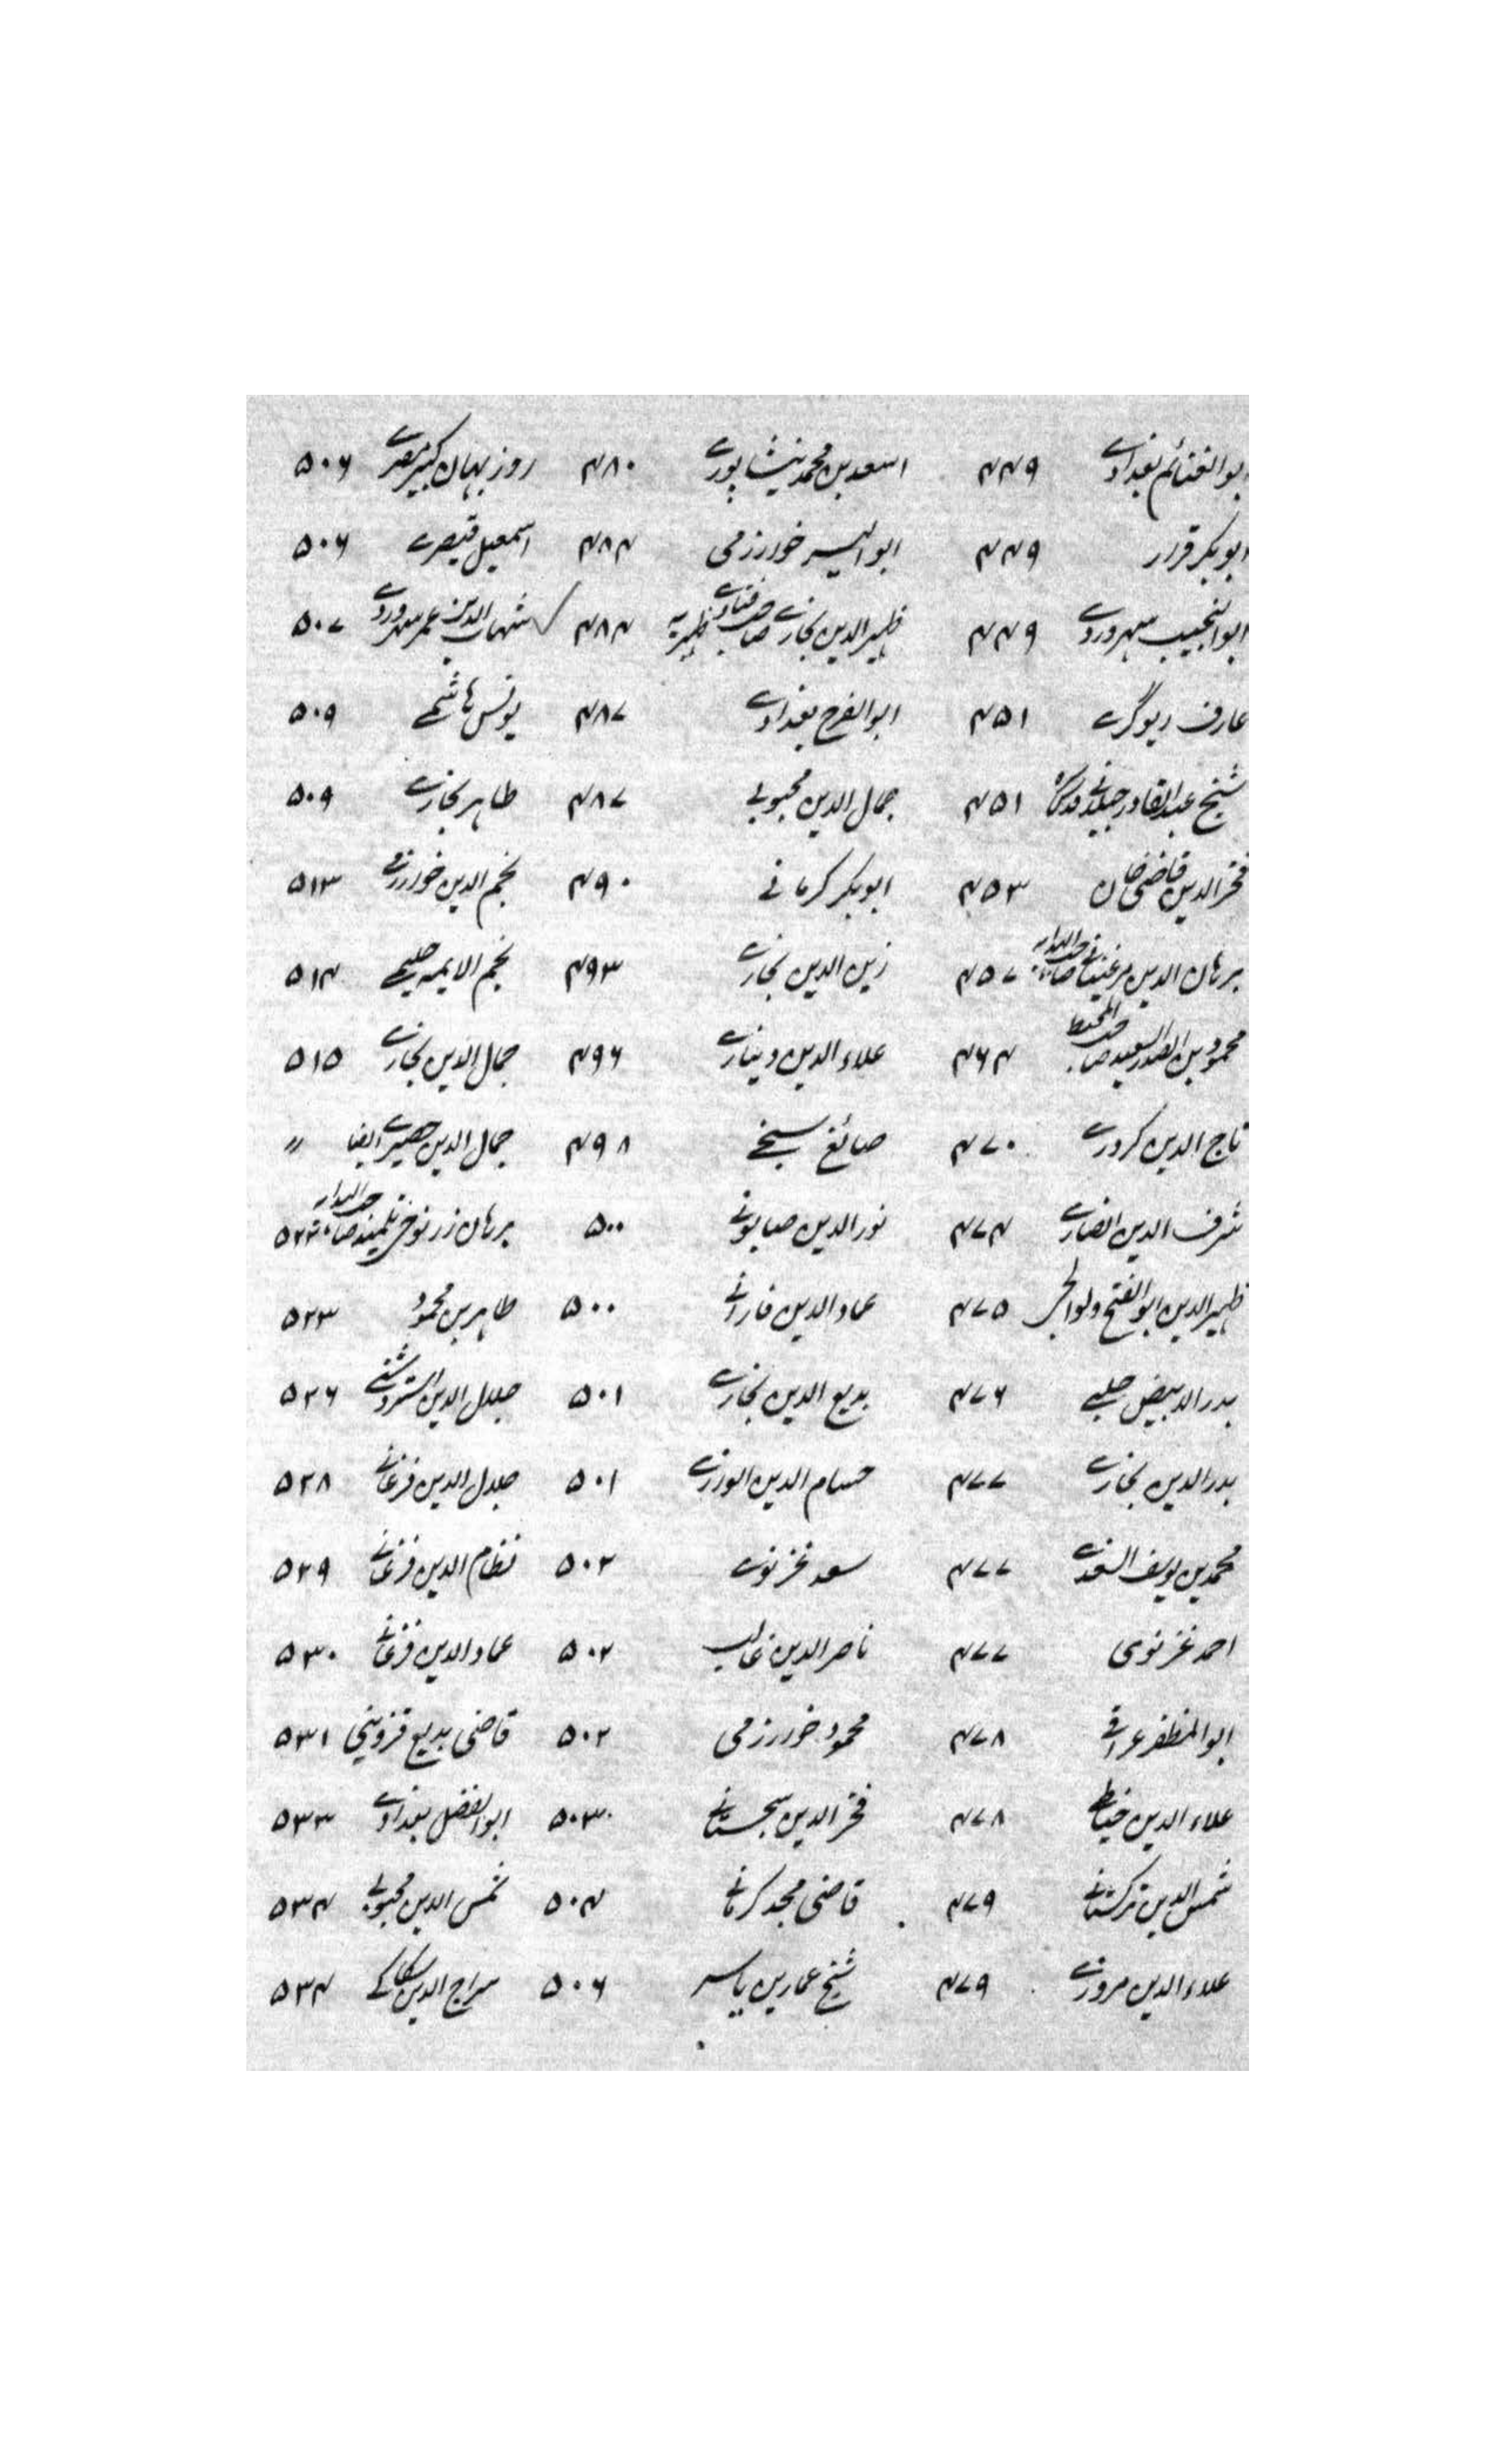 ابوالغنائم بغدادے ۴۴۹ اسعد بن محمد نیشاپورے ۴۸۰ روز بہان کبیر مصرے ۵۰۶
ابوبکر قزار ۴۴۹ ابوالیسر خوارزمی ۴۸۴ اسمعیل قیصرے ۵۰۶
ابوالنجیب سہروردے ۴۴۹ ظہیرالدین بخارے صاحب فتاوے ظہیریہ ۴۸۴ شہاب الدین عمر سہروردے ۵۰۷
عارف ریوگرے ۴۵۱ ابوالفرح بغدادے ۴۸۷ یونس ہاشمے ۵۰۹
شیخ عبدالقادر جیلانے قدس سرہ ۴۵۱ جمال الدین محبوبے ۴۸۷ طاہر بخارے ۵۰۹
فخرالدین قاضی خان ۴۵۳ ابوبکر کرمانے ۴۹۰ نجم الدین خوارزمے ۵۱۳
برہان الدین مرغینانے صاحب الہدایہ ۴۵۷ زین الدین بخارے ۴۹۳ نجم الایمہ حلیمے ۵۱۴
محمود بن الصدر السعید صاحب المحیط ۴۶۴ علاء الدین دینارے ۴۹۶ جمال الدین بخارے ۵۱۵
تاج الدین کردرے ۴۷۰ صائغ سنجے ۴۹۸ جمال الدین حصیرے ایضا "
شرف الدین انصارے ۴۷۴ نورالدین صابونے ۵۰۰ برہان زرنوجی تلمیذ صاحب الہدایہ ۵۲۲
ظہیرالدین ابوالفتح ولوالجی ۴۷۵ عماد الدین فارانے ۵۰۰ طاہر بن محمود ۵۲۳
بدرالابیض حلبے ۴۷۶ بدیع الدین بخارے ۵۰۱ جلال الدین استروشنے ۵۲۶
بدرالدین بخارے ۴۷۷ حسام الدین الورازے ۵۰۱ جلال الدین فرغانے ۵۲۸
محمد بن یوسف السغدے ۴۷۷ سعد غزنوے ۵۰۲ نظام الدین فرغانے ۵۲۹
احمد غزنوی ۴۷۷ ناصرالدین غالب ۵۰۲ عماد الدین فرغانے ۵۳۰
ابوالمظفر عراقے ۴۷۸ محمود خوارزمی ۵۰۲ قاضی بدیع قزوینی ۵۳۱
علاء الدین خیاط ۴۷۸ فخرالدین سجستانے ۵۰۳ ابوالفضل بغدادے ۵۳۳
شمس الدین ترکستانے ۴۷۹ قاضی مجد کرمانے ۵۰۴ شمس الدین محبوبے ۵۳۴
علاء الدین مروزے ۴۷۹ شیخ عمار بن یاسر ۵۰۶ سراج الدین سکاکے ۵۳۴